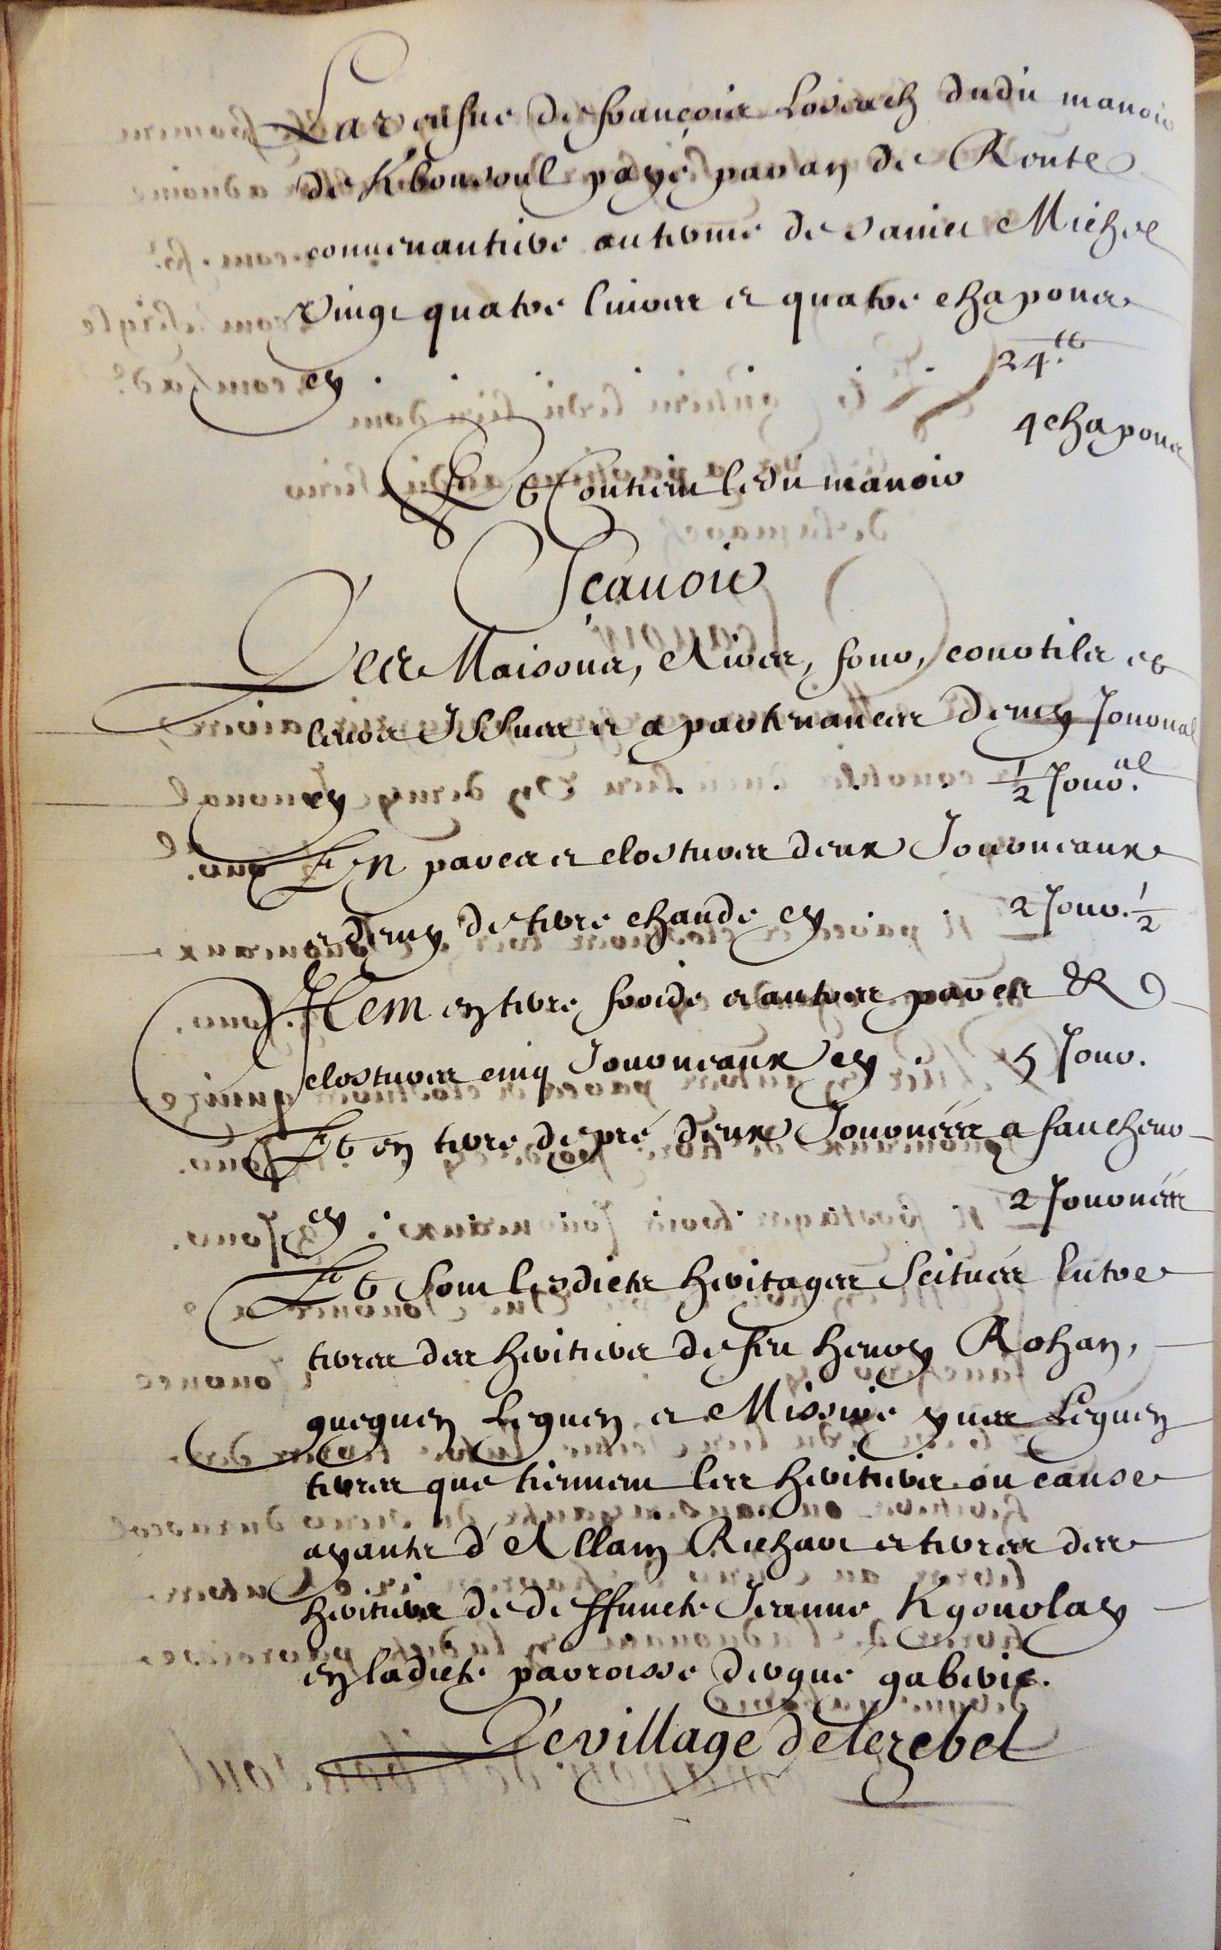 La veufue de françois Lovrach dudit manoir
de Kbouroul paye par an de Rente
conuenantiere au terme de sainct Michel
vingt quatre liures et quatre chapons
cy . . . . . 24.tt
4 chapons
Et Contient ledit manoir
Sçauoir
Les Maisons, Aires, four, courtils et
leurs Issues et apartenances demy Journal
cy . . . . 1/2 Jour.al
En parcs et clostures deux Journeaux
et demy de terre chaude cy 2 Jour. 1/2
Item en terre froide et autres parcs &
clostures cinq Journeaux cy . 5 Jour.
Et en terre de pré deux Journées a faucheur
cy . 2 Journées
Et sont lesdicts heritages scituées Entre
terres des heritiers de feu henry Rohan,
gueguen Leguen et Missire yues Leguen
terres que tiennent les heritiers ou cause
ayants d'Allain Richart et terres des
heritiers de deffuncte Jeanne Kgouolay
en ladicte parroisse dergué gaberic.
Le village de lezebel